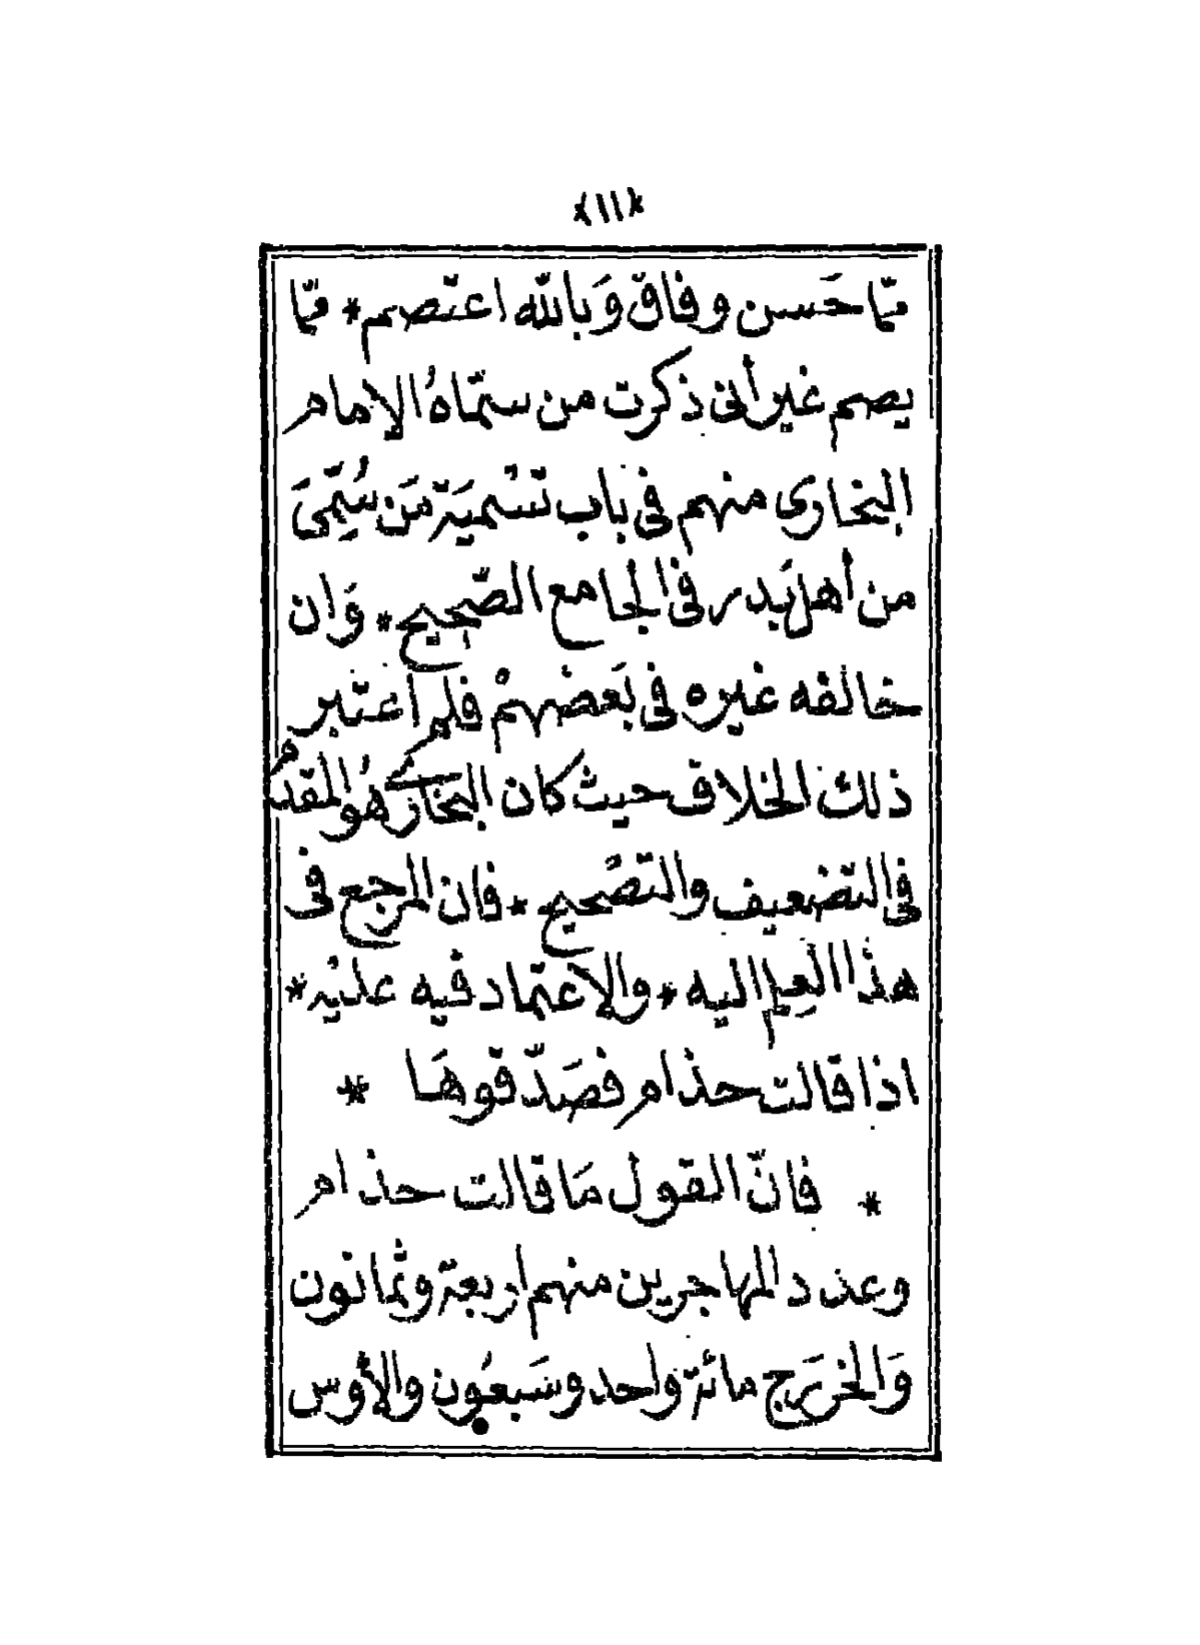 ﴿١١﴾
ممّا حَسن وفاق وَبالله اعتصم * ممّا
يصم غير أنى ذكرت من سمّاهُ الإمام
البخارى منهم فى باب تسْميَة مَن سُمِّىَ
من أهل بَدر فى الجامع الصّحيح * وَان
خالفه غيره فى بَعضهمْ فلم اعتبر
ذلك الخلاف حيث كان البخارى هُو المقدَّم
فى التضعيف والتصْحيح * فان المرجع فى
هذا العِلم اليه * والإعتماد فيه عليْه *
اذا قالت حذام فصَدّقوهَا *
* فانّ القول مَا قالت حذام
وعدد المهاجرين منهم اربعة وثمانون
وَالخزرَج مائة واحد وسَبعُون والأوس